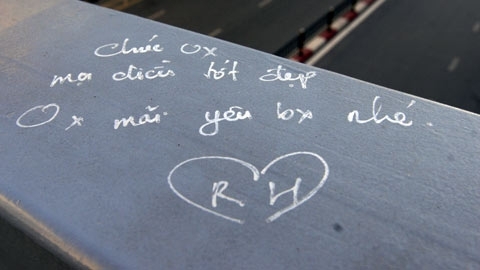 Chúc Ox
mọi điều tốt đẹp
Ox mãi yêu bx nhé.
R H